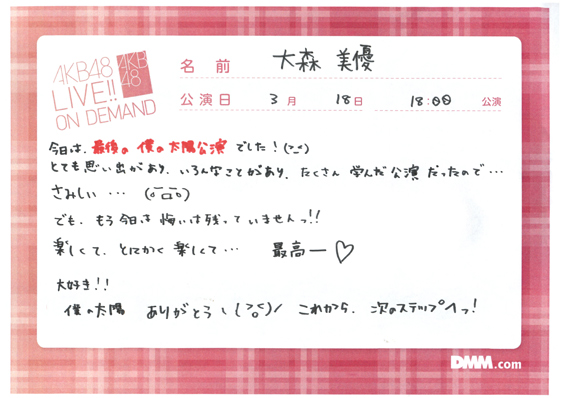 AKB48
LIVE!!
ON DEMAND
AKB
48
名前 大森 美優
公演日 3月 18日 18:00 公演
今日は、最後の 僕の太陽公演 でした！(>_<)
とても思い出があり、いろんなことがあり、たくさん 学んだ 公演 だったので…
さみしい …
でも、もう今日は 悔いは残って いませんっ!!
楽しくて、とにかく 楽しくて… 最高ー♡
大好き!!
僕の太陽 ありがとう＼(>o<)／ これから、次のステップへっ！
DMM.com